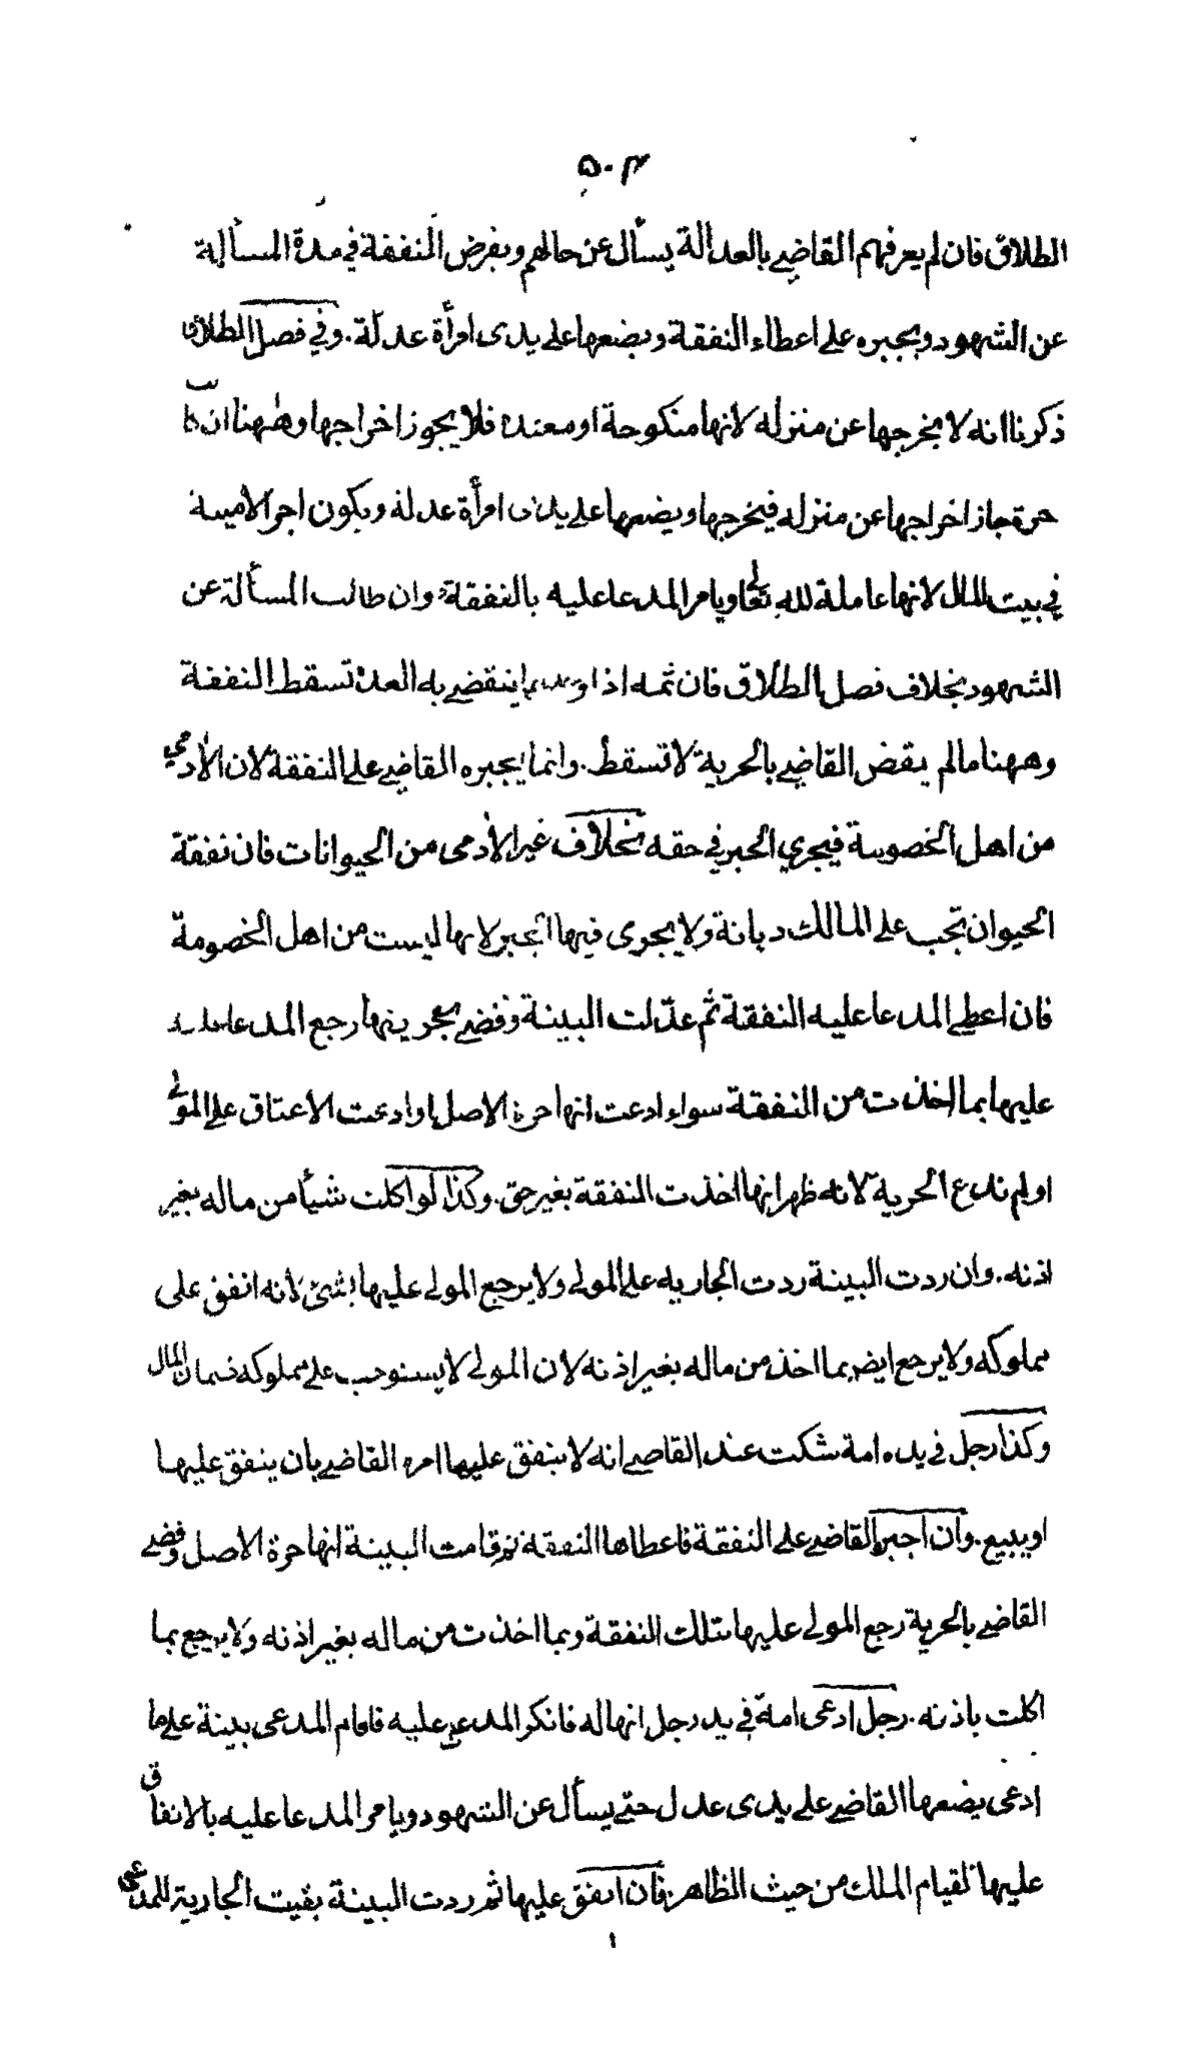 ٥٠٣
الطلاق فان لم يعرفهم القاضي بالعدالة يسأل عن حالهم ويفرض النفقة في مدة المسألة
عن الشهود ويجبره على اعطاء النفقة ويضعها على يدى امرأة عدلة. وفي فصل الطلاق
ذكرنا انه لا يخرجها عن منزله لانها منكوحة او معتدة فلا يجوز اخراجها وههنا ان كانت
حرة جاز اخراجها عن منزله فيخرجها ويضعها على يدى امرأة عدلة ويكون اجر الامينة
في بيت المال لانها عاملة لله تعالى ويامر المدعا عليه بالنفقة وان طالت المسألة عن
الشهود بخلاف فصل الطلاق فان ثمه اذا ينقضي به العدة تسقط النفقة
وههنا مالم يقض القاضي بالحرية لا تسقط. وانما يجبره القاضي على النفقة لان الآدمي
من اهل الخصومة فيجري الجبر في حقه بخلاف غير الآدمى من الحيوانات فان نفقة
الحيوان تجب على المالك ديانة ولا يجرى فيها الجبر لانها ليست من اهل الخصومة
فان اعطى المدعا عليه النفقة ثم عدّلت البينة وقضى بحريتها رجع المدعا عليه
عليها بما اخذت من النفقة سواء ادعت انها حرة الاصل او ادعت الاعتاق على المولى
او لم تدع الحرية لانه ظهر انها اخذت النفقة بغير حق. وكذا لو اكلت شيأ من ماله بغير
اذنه. وان ردت البينة ردت الجارية على المولى ولا يرجع المولى عليها بشئ لانه انفق على
مملوكه ولا يرجع ايضا بما اخذ من ماله بغير اذنه لان المولى لا يستوجب على مملوكه ضمان المال
وكذا رجل في يده امة شكت عند القاضي انه لا ينفق عليها امره القاضي بان ينفق عليها
او يبيع. وان اجبر القاضي على النفقة فاعطاها النفقة ثم قامت البينة انها حرة الاصل وقضى
القاضي بالحرية رجع المولى عليها بتلك النفقة وبما اخذت من ماله بغير اذنه ولا يرجع بما
اكلت باذنه. رجل ادعى امة في يد رجل انها له فانكر المدعى عليه فاقام المدعى بينة على ما
ادعى يضعها القاضي على يدى عدل حتى يسأل عن الشهود ويامر المدعا عليه بالانفاق
عليها لقيام الملك من حيث الظاهر. فان انفق عليها ثم ردت البينة بقيت الجارية للمدعى